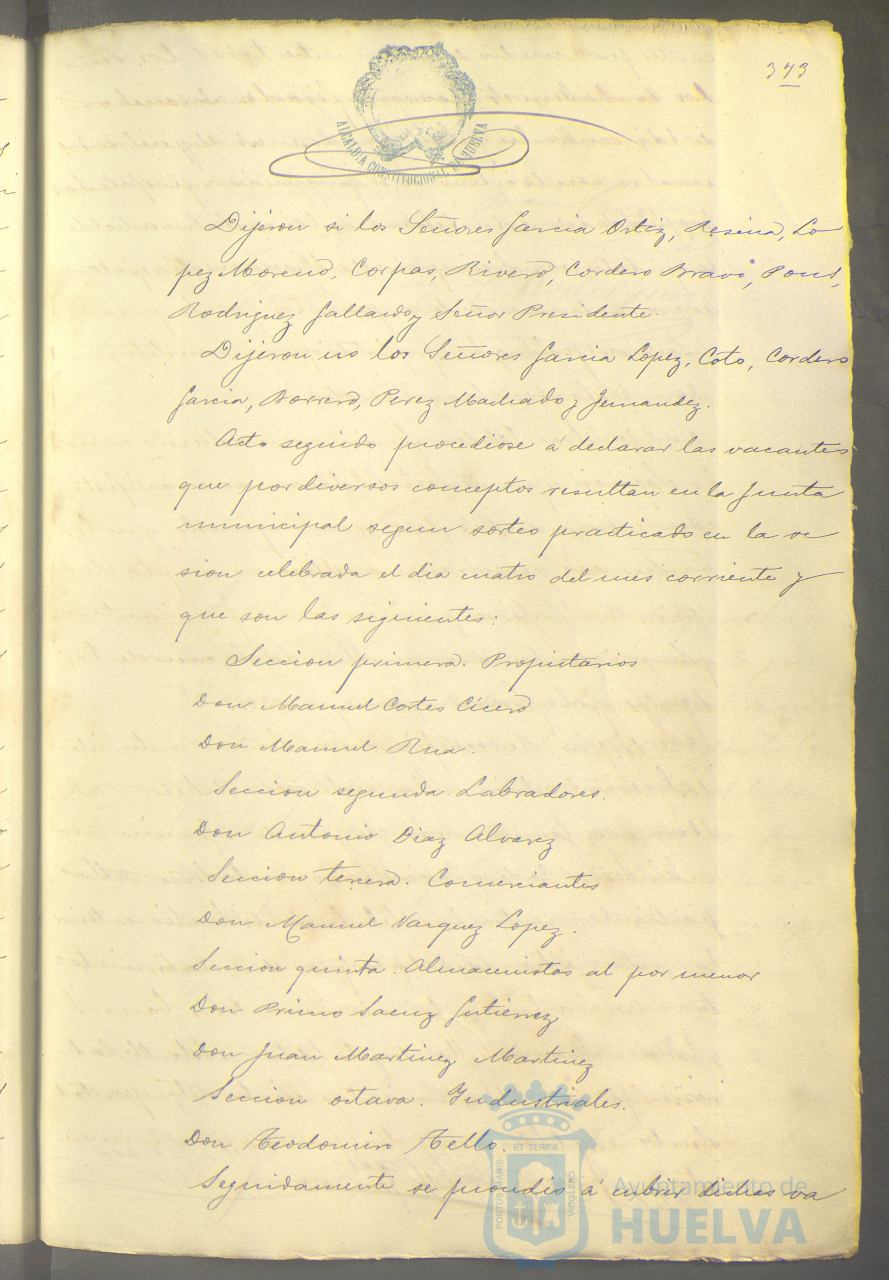 373
ALCALDIA CONSTITUCIONAL DE HUELVA
Dijeron si los Señores Garcia Ortiz, Resina, Lo
pez Moreno, Corpas, Rivero, Cordero Bravo, Pons,
Rodriguez Gallardo y Señor Presidente.
Dijeron no los Señores Garcia Lopez, Coto, Cordero
Garcia, Borrero, Perez Machado y Fernandez.
Acto seguido procediose á declarar las vacantes
que por diversos conceptos resultan en la Junta
municipal segun sorteo practicado en la se
sion celebrada el dia cuatro del mes corriente y
que son las siguientes:
Seccion primera. Propietarios
Don Manuel Cortes Cícero
Don Manuel Rua.
Seccion segunda. Labradores.
Don Antonio Diaz Alvarez
Seccion tercera. Comerciantes
Don Manuel Vazquez Lopez.
Seccion quinta. Almacenistas al por menor
Don Primo Saenz Gutierrez
Don Juan Martinez Martinez
Seccion octava. Industriales.
Don Teodomiro Tello.
Seguidamente se procedió á cubrir dichas va
PORTUS MARIS ET TERRAE CUSTODIA
Ayuntamiento de
HUELVA